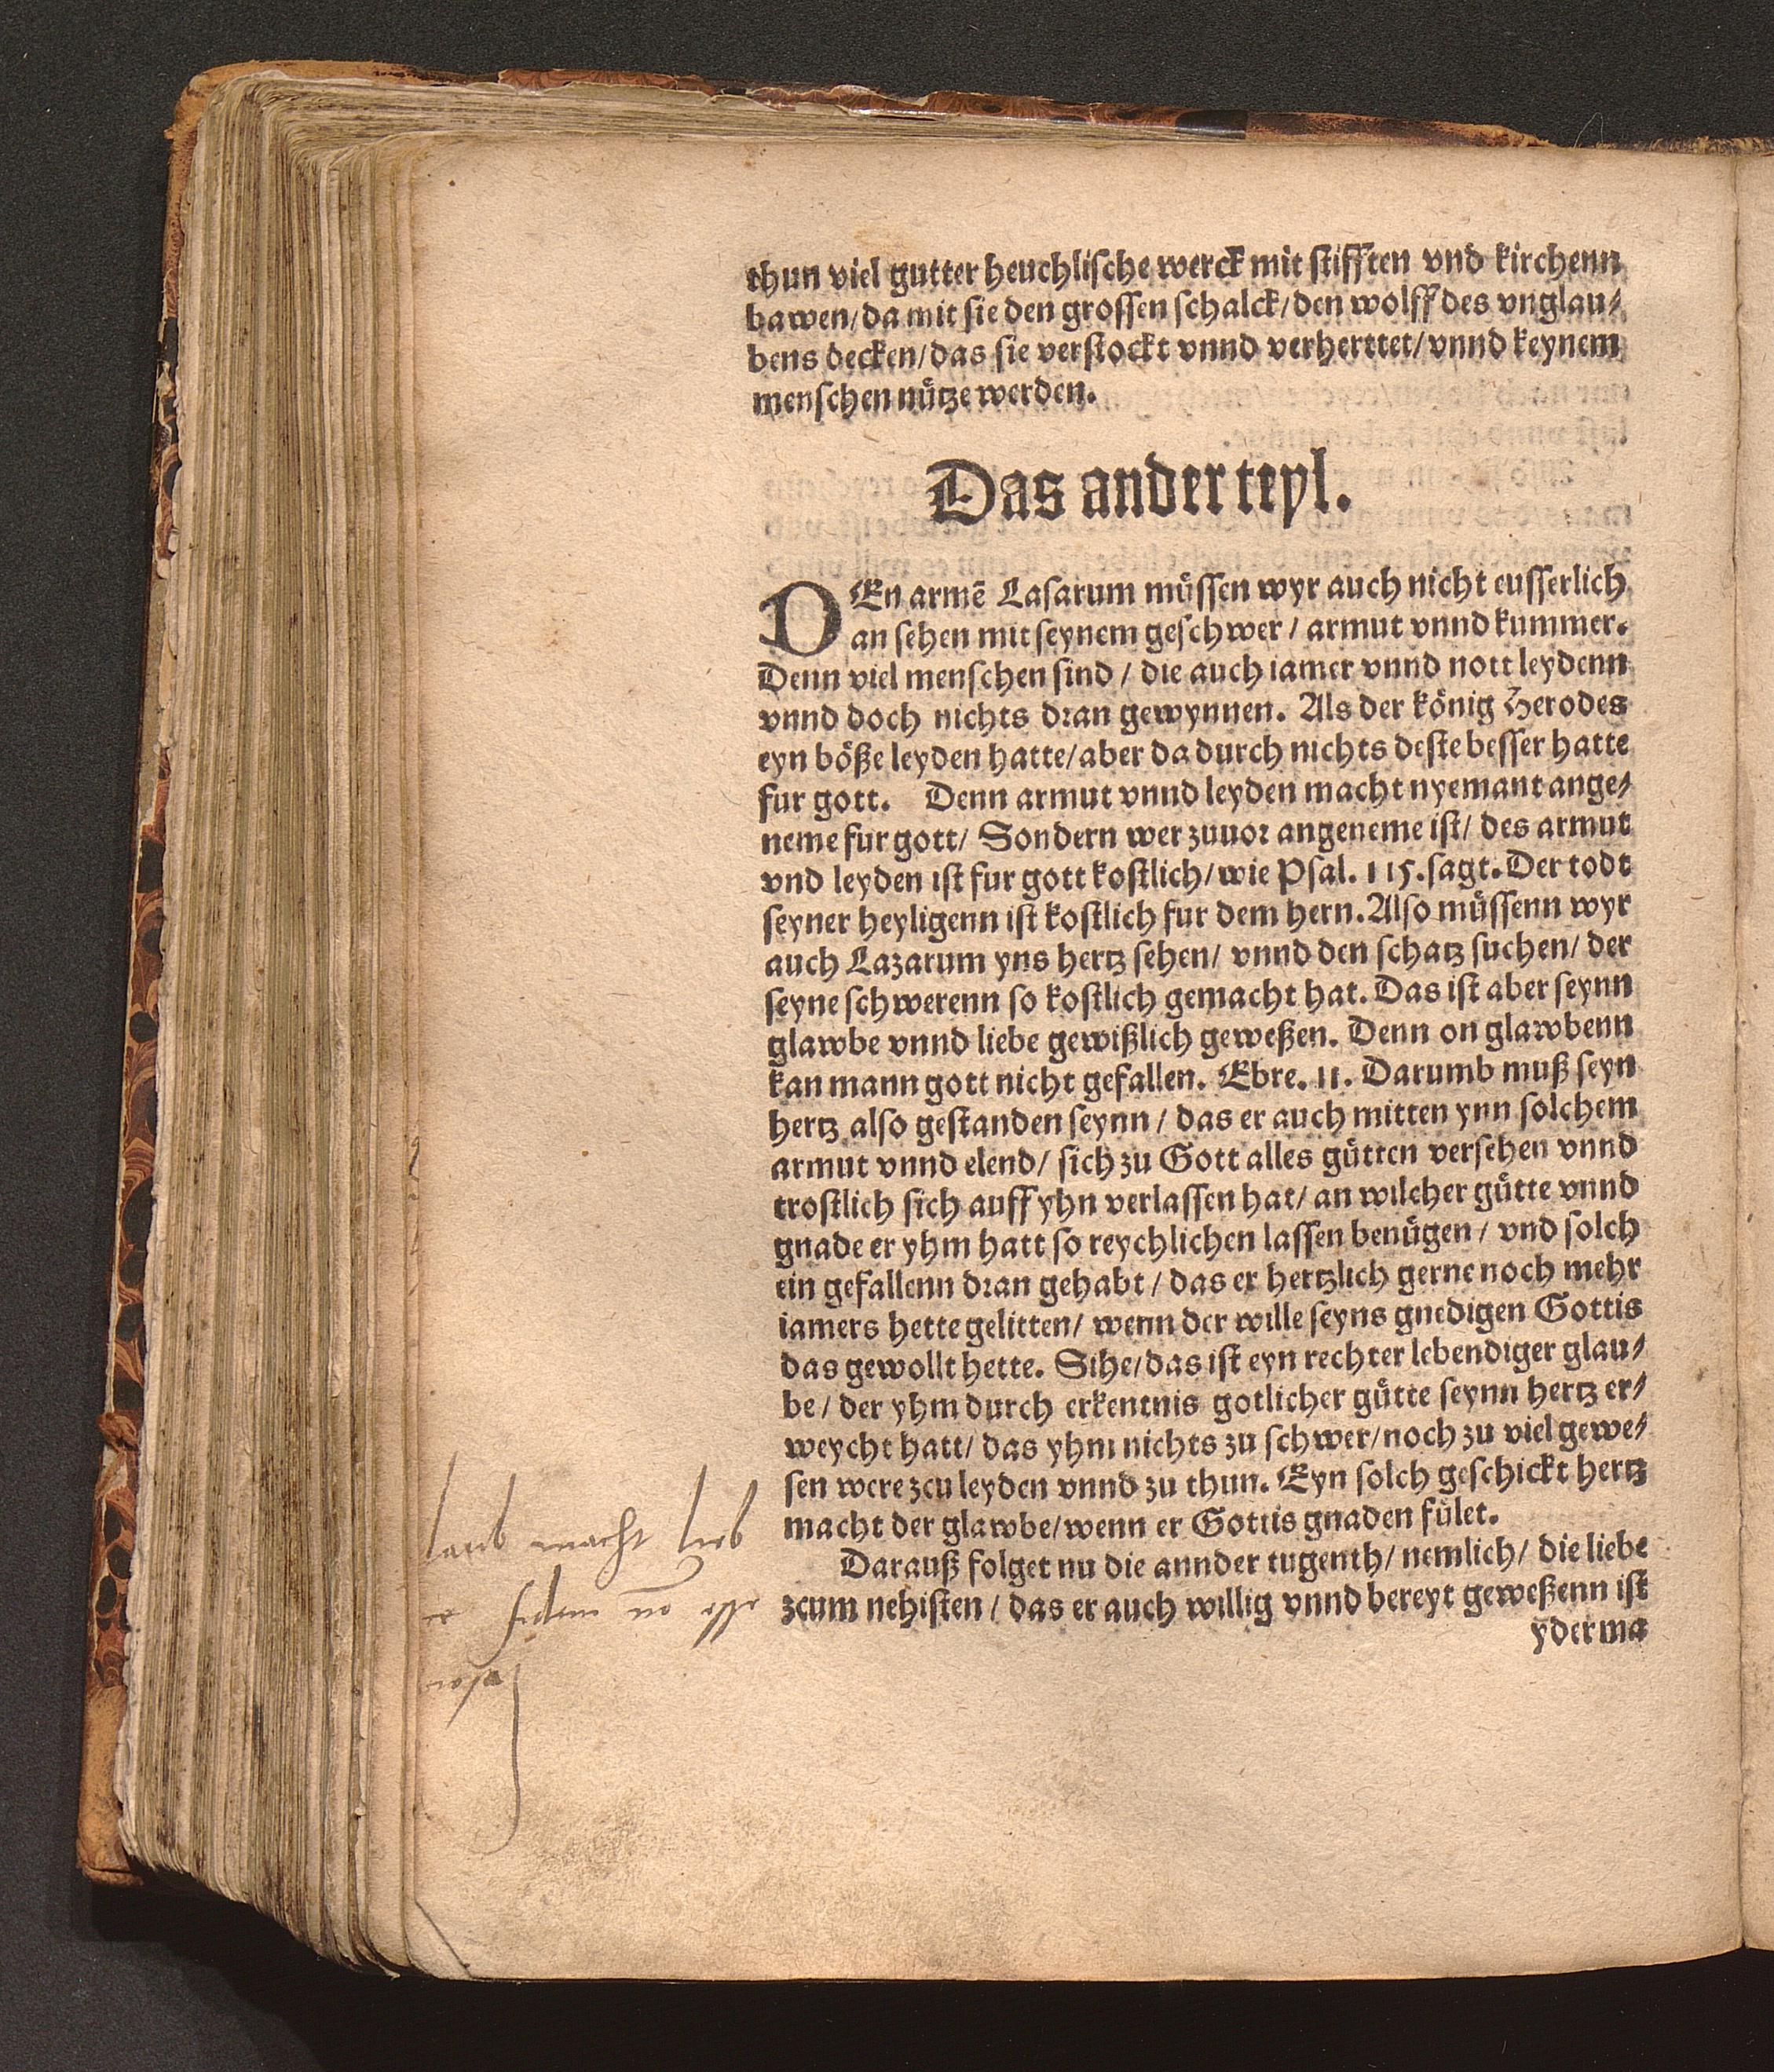 thun viel gutter heuchlische werck mit stifften vnd kirchenn
bawen/da mit sie den grossen schalck/den wolff des vnglau/
bens decken/das sie verstockt vnnd verherttet/vnnd keynem
menschen nütze werden.
Das ander teyl.
DEn armē Lasarum müssen wyr auch nicht eusserlich
an sehen mit seynem geschwer/ armut vnnd kummer.
Denn viel menschen sind/ die auch iamer vnnd nott leydenn
vnnd doch nichts dran gewynnen. Als der könig Herodes
eyn böße leyden hatte/aber da durch nichts deste besser hatte
fur gott. Denn armut vnnd leyden macht nyemant ange/
neme fur gott/ Sondern wer zuuor angeneme ist/ des armut
vnd leyden ist fur gott kostlich/wie Psal. 115.sagt.Der todt
seyner heyligenn ist kostlich fur dem hern.Also müssenn wyr
auch Lazarum yns hertz sehen/ vnnd den schatz suchen/ der
seyne schwerenn so kostlich gemacht hat. Das ist aber seynn
glawbe vnnd liebe gewißlich geweßen. Denn on glawbenn
kan mann gott nicht gefallen. Ebre. 11. Darumb muß seyn
hertz also gestanden seynn/ das er auch mitten ynn solchem
armut vnnd elend/ sich zu Gott alles gütten versehen vnnd
trostlich sich auff yhn verlassen hat/ an wilcher gütte vnnd
gnade er yhm hatt so reychlichen lassen benügen/ vnd solch
ein gefallenn dran gehabt/ das er hertzlich gerne noch mehr
iamers hette gelitten/ wenn der wille seyns gnedigen Gottis
das gewollt hette. Sihe/das ist eyn rechter lebendiger glau/
be/ der yhm durch erkentnis gotlicher gütte seynn hertz er/
weycht hatt/ das yhm nichts zu schwer/noch zu viel gewe/
sen were zcu leyden vnnd zu thun. Eyn solch geschickt hertz
macht der glawbe/wenn er Gottis gnaden fület.
Darauß folget nu die annder tugenth/ nemlich/ die liebe
zcum nehisten/ das er auch willig vnnd bereyt geweßenn ist
yderma
laub macht lieb
fidem nō esse